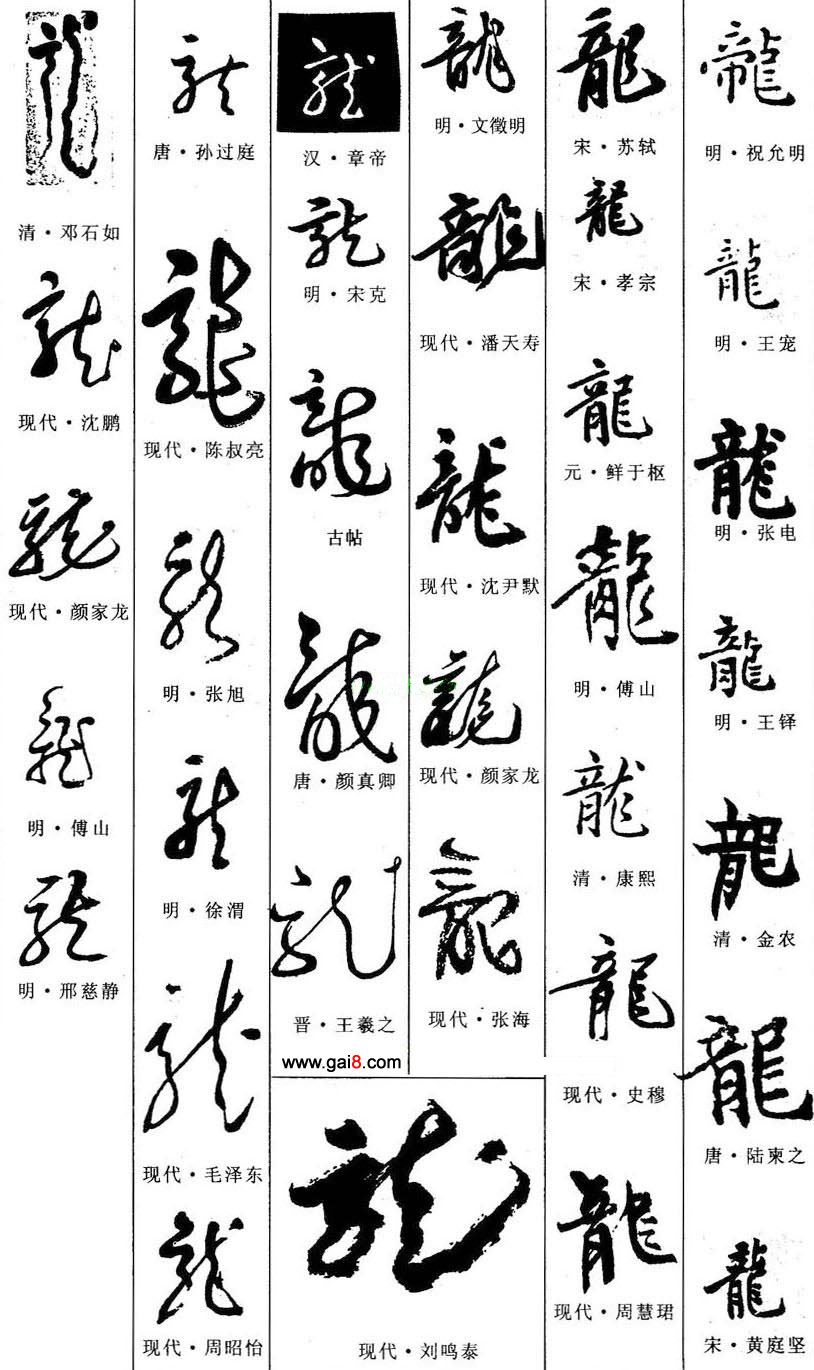 龍
清·邓石如
龍
现代·沈鹏
龍
现代·颜家龙
龍
明·傅山
龍
明·邢慈静
龍
唐·孙过庭
龍
现代·陈叔亮
龍
明·张旭
龍
明·徐渭
龍
现代·毛泽东
龍
现代·周昭怡
龍
汉·章帝
龍
明·宋克
龍
古帖
龍
唐·颜真卿
龍
晋·王羲之
www.gai8.com
龍
现代·刘鸣泰
龍
明·文徵明
龍
现代·潘天寿
龍
现代·沈尹默
龍
现代·颜家龙
龍
现代·张海
龍
宋·苏轼
龍
宋·孝宗
龍
元·鲜于枢
龍
明·傅山
龍
清·康熙
龍
现代·史穆
龍
现代·周慧珺
龍
明·祝允明
龍
明·王宠
龍
明·张电
龍
明·王铎
龍
清·金农
龍
唐·陆柬之
龍
宋·黄庭坚